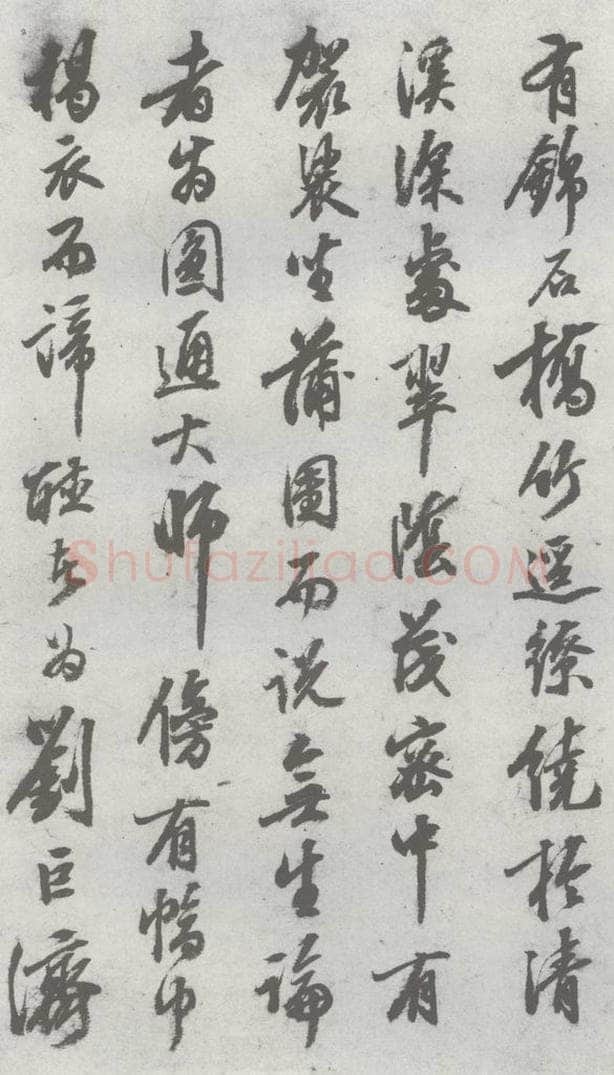 有錦石橋竹逕繚繞於清
溪深處翠陰茂密中有
袈裟坐蒲團而說無生論
者為圓通大師傍有幅巾
褐衣而諦聽者為劉巨濟
Shufaziliao.COM